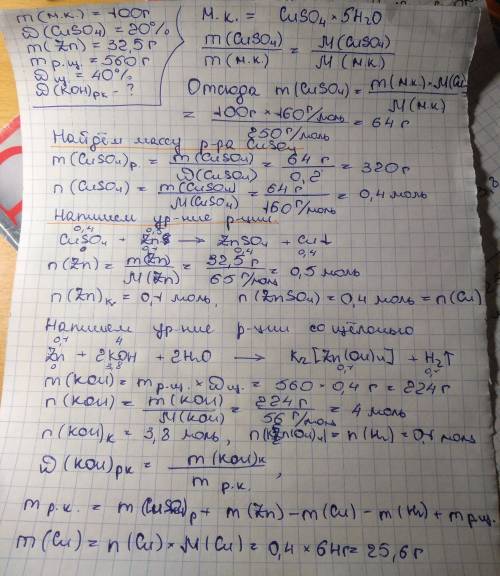 m(м.к.) = 100г
D(CuSO4) = 20%
m(Zn) = 32,5г
m р.щ. = 560г
Dщ. = 40%
D(KOH)рк - ?
М.к. = CuSO4 × 5H2O
m(CuSO4) / m(м.к.) = M(CuSO4) / M(м.к.)
Отсюда m(CuSO4) = m(м.к) × M(Cu / M(м.к)
= 100г × 160г/моль / 250г/моль = 64г
Найдём массу р-ра CuSO4
m(CuSO4)р = m(CuSO4) / D(CuSO4) = 64г / 0,2 = 320г
n(CuSO4) = m(CuSO4) / M(CuSO4) = 64г / 160г/моль = 0,4 моль
Напишем ур-ние р-ции
0,4 0,5
CuSO4 + Zn → ZnSO4 + Cu↓
0 0,1 0,4 0,4
n(Zn) = m(Zn) / M(Zn) = 32,5г / 65г/моль = 0,5 моль
n(Zn)к = 0,1 моль, n(ZnSO4) = 0,4 моль = n(Cu)
Напишем ур-ние р-ции со щёлочью
0,1 4
Zn + 2KOH + 2H2O → K2[Zn(OH)4] + H2↑
0 3,8 0,1 0,1
m(KOH) = m р.щ. × Dщ. = 560 × 0,4г = 224г
n(KOH) = m(KOH) / M(KOH) = 224г / 56г/моль = 4 моль
n(KOH)к = 3,8 моль, = n(H2) = 0,1 моль
D(KOH)рк = m(KOH)к / m р.к. ,
m р.к. = m(CuSO4)р + m(Zn) - m(Cu) - m(H2) + m рщ.
m(Cu) = n(Cu) × M(Cu) = 0,4 × 64г = 25,6г